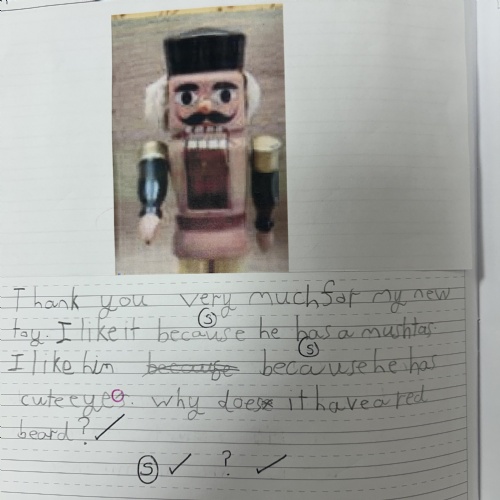 Thank you very much for my new
toy. I like it because he has a mushtas.
Ⓢ
Ⓢ
I like him because because he has
cute eyes. why does it have a red
beard? ✓
Ⓢ ✓ ? ✓